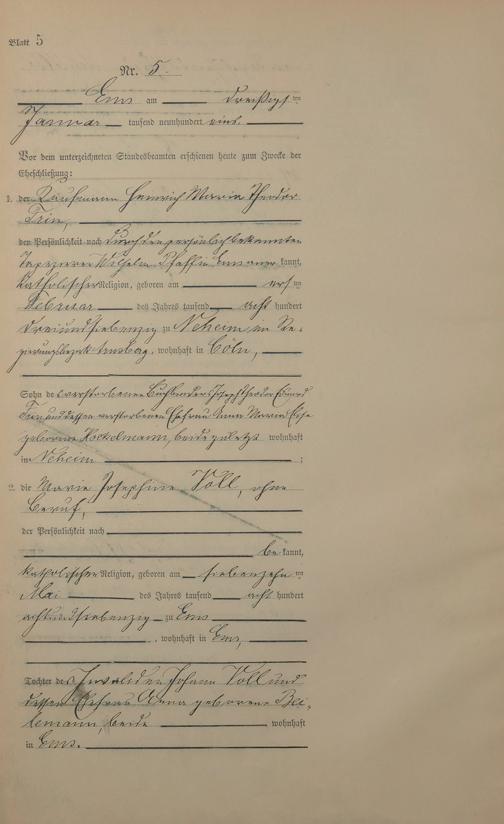 Blatt 5
Nr. 5.
Ems am dreißigsten
Januar tausend neunhundert eins.
Vor dem unterzeichneten Standesbeamten erschienen heute zum Zwecke der
Eheschließung:
1. der Kaufmann Heinrich Maria Theodor
der Persönlichkeit nach durch den persönlich bekannten
Tapezierer Wilhelm Pfaff in Ems anerkannt,
katholischer Religion, geboren am ersten
Februar des Jahres tausend acht hundert
dreiundsiebenzig zu Neheim im Re-
gierungsbezirk Arnsberg, wohnhaft in Cöln,
Sohn des verstorbenen Buchbinders Joseph Theodor Eduard
und dessen verstorbenen Ehefrau Anna Maria
geborene beide zuletzt wohnhaft
in Neheim ;
2. die Maria Josephine Voll, ohne
Beruf,
der Persönlichkeit nach
bekannt,
katholischer Religion, geboren am siebenzehnten
Mai des Jahres tausend acht hundert
achtundsiebenzig zu Ems
, wohnhaft in Ems,
Tochter des Invaliden Johann Voll und
dessen Ehefrau Anna geborene
beide wohnhaft
in Ems.